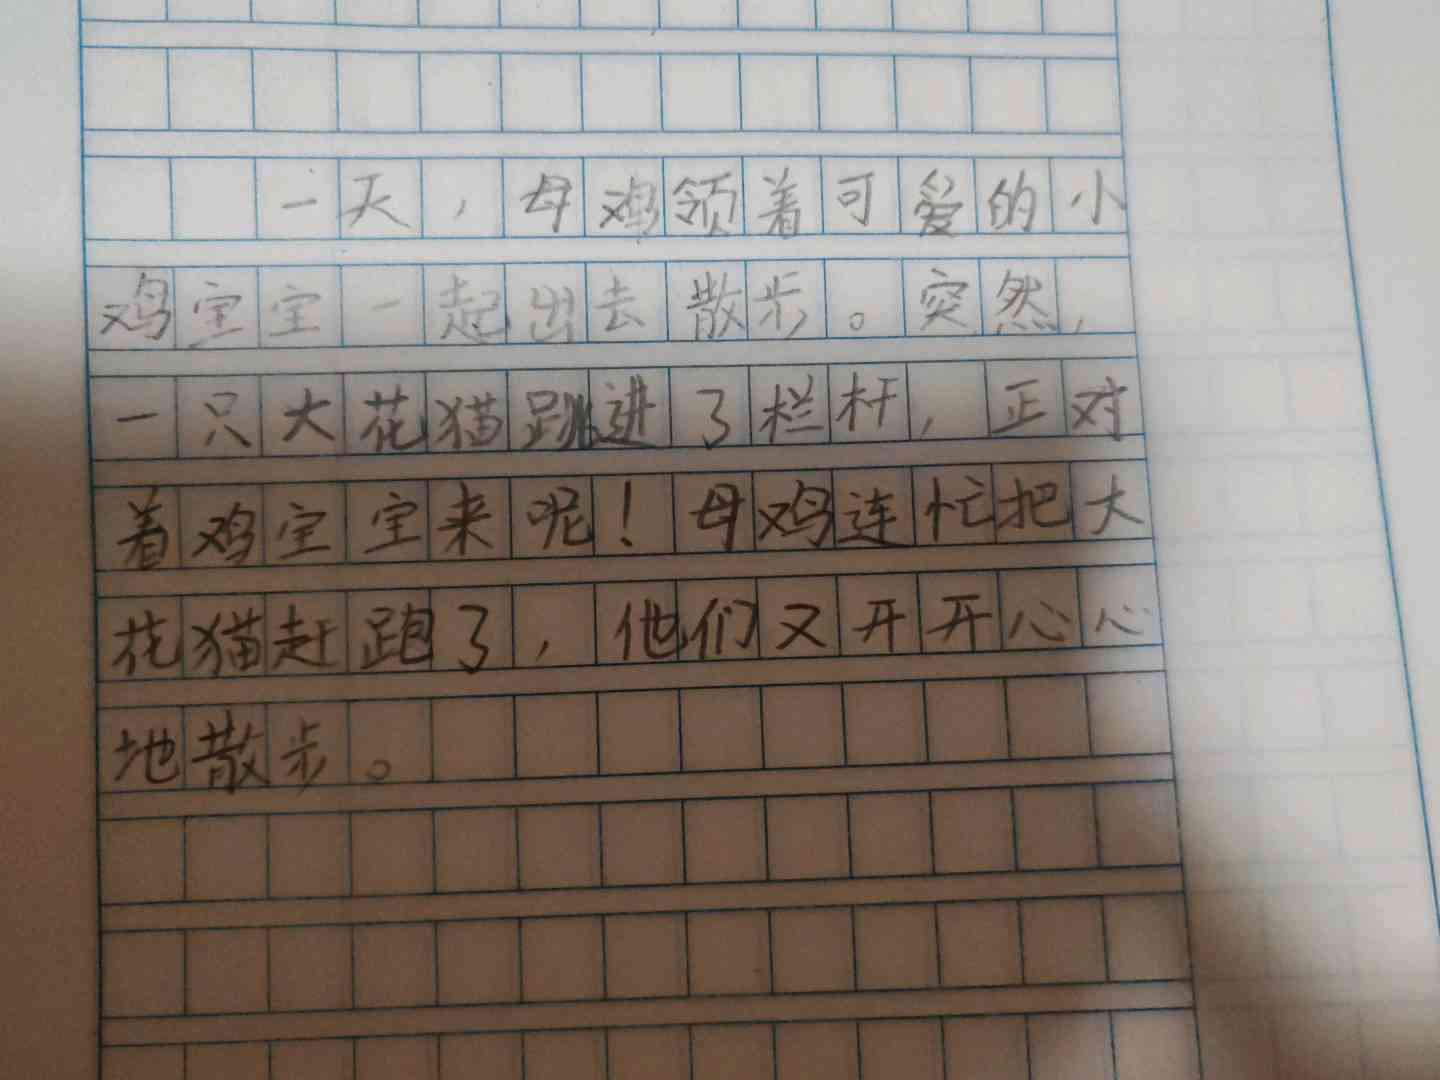 一天，母鸡领着可爱的小
鸡宝宝一起出去散步。突然，
一只大花猫跳进了栏杆，正对
着鸡宝宝来呢！母鸡连忙把大
花猫赶跑了，他们又开开心心
地散步。